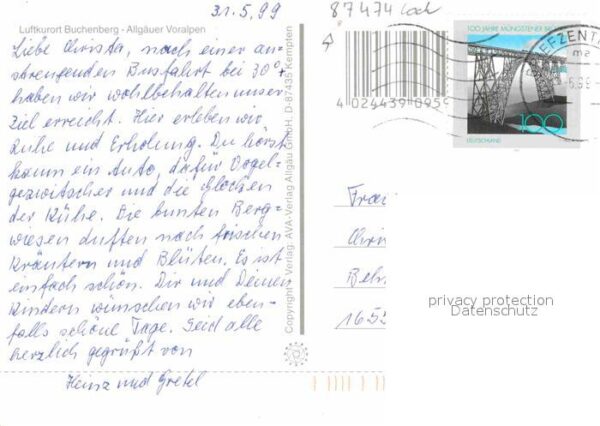 31.5.99
87474
Luftkurort Buchenberg - Allgäuer Voralpen
Liebe Christa, nach einer an-
strengenden Busfahrt bei 30°
haben wir wohlbehalten unser
Ziel erreicht. Hier erleben wir
Ruhe und Erholung. Du hörst
kaum ein Auto, dafür Vogel-
gezwitscher und die Glocken
der Kühe. Die bunten Berg-
wiesen duften nach frischen
Kräutern und Blüten. Es ist
einfach schön. Dir und Deinen
Kindern wünschen wir eben-
falls schöne Tage. Seid alle
herzlich gegrüßt von
Heinz und Gretel
Copyright + Verlag AVA-Verlag Allgäu GmbH, D-87435 Kempten
4 024439 0959
100 JAHRE MÜNGSTENER
100
DEUTSCHLAND
EFZENT
Frau
Chri
Beh
1653
privacy protection
Datenschutz